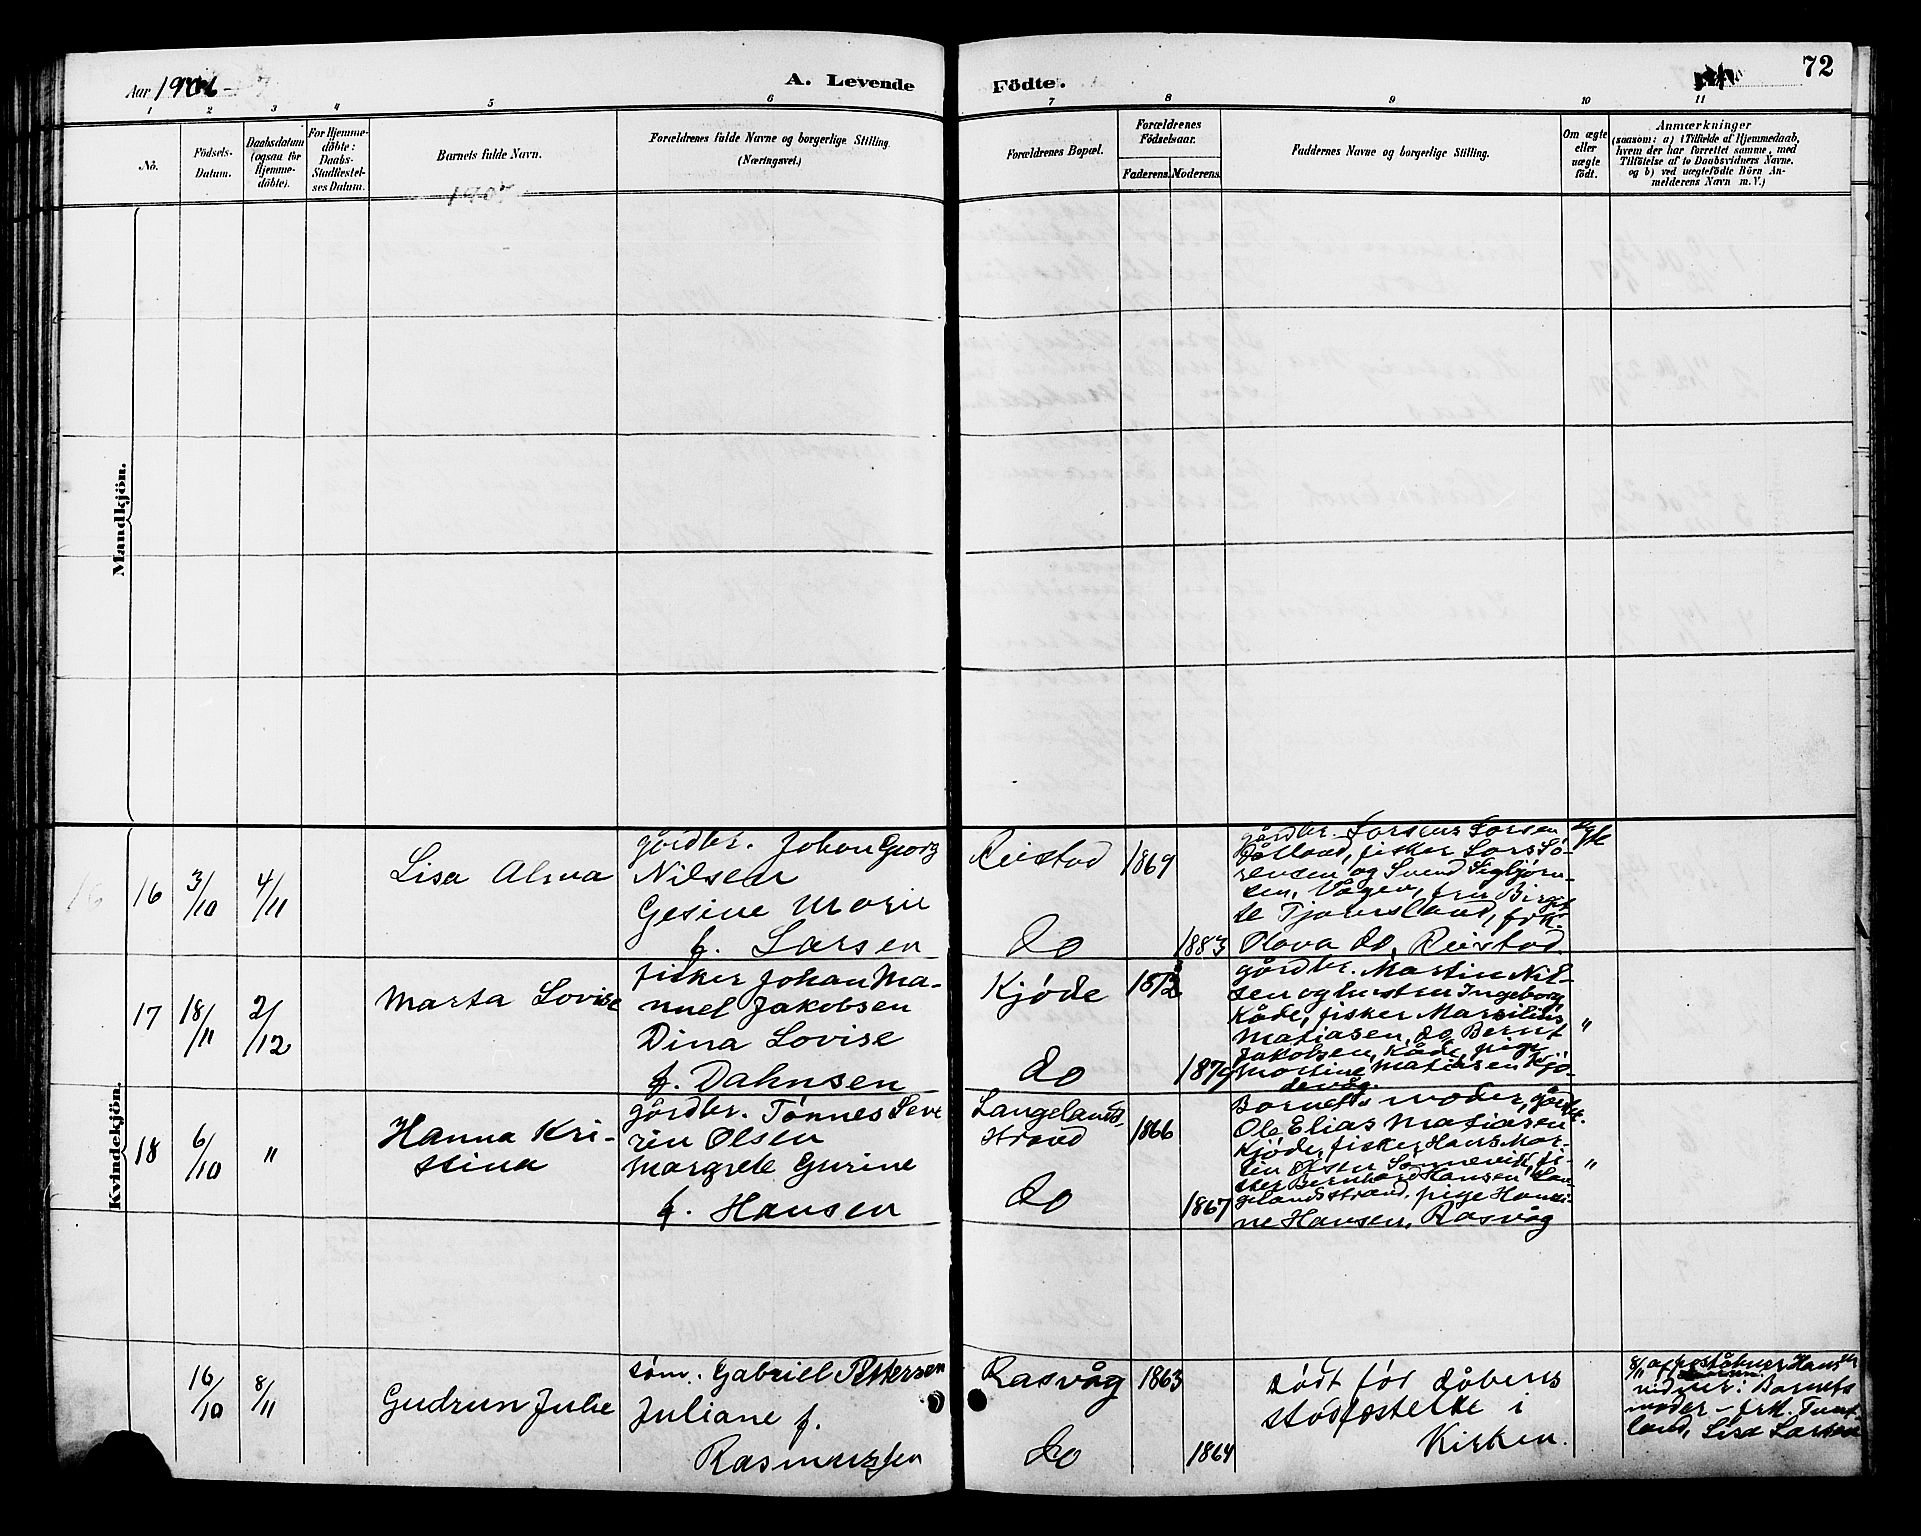 Aar 1906
A. Levende
Födte.
72
1 2 3 4 5 6 7 8 9 10 11
No.
Födsels-
Datum.
Daabsdatum
(ogsaa for
Hjemme-
döbte).
For Hjemme-
döbte:
Daabs-
Stadfæstel-
ses Datum.
Barnets fulde Navn.
Forældrenes fulde Navne og borgerlige Stilling.
(Næringsvei.)
Forældrenes Bopæl.
Forældrenes
Födselsaar.
Faderens. Moderens.
Faddernes Navne og borgerlige Stilling.
Om ægte
eller
uægte
födt.
Anmærkninger
(saasom: a) i Tilfælde af Hjemmedaab,
hvem der har forrettet samme, med
Tilföielse af to Daabsvidners Navne,
og b) ved uægtefödte Börn An-
melderens Navn m. V.)
1907
Mandkjön.
Kvindekjön.
16
3/10
4/11
Lisa Alma
gårdbr. Johan Georg
Nilsen
Gesine Marie
f. Larsen
Reistad
do
1869
1883
gårdbr. Lorens Lorsen
Dåtland, fisker Lars Sø-
rensen og Svend Sigbjørn-
sen, Vågen, fru Birgit-
te Tjomsland, frk.
Olava do, Reistad
ægte
17
18/11
2/12
Marta Lovise
fisker Johan Ma-
nuel Jakobsen
Dina Lovise
f. Dahnsen
Kjøde
do
1879
gårdbr. Martin Nil-
sen og hustru Ingeborg
Kåde, fisker Marsilius
Matiasen, do, Bernt
Jakobsen, Kåde, pige
Martine Matiasen Kjø-
devåg.
"
18
6/10
"
Hanna Kri-
stina
gårdbr. Tønnes Seve
rin Olsen
Margrete Gurine
f. Hansen
Langelands
strand
do
1866
1867
Barnets moder, gårdbr.
Ole Elias Matiasen
Kjøde, fisker Hans Mar-
tin Olsen Sånnevik, fi-
sker Bernhard Hansen, Lan-
gelandsstrand, pige Hansi-
ne Hansen, Rasvåg
"
16/10
8/11
Gudrun Julie
søm. Gabriel Pettersen
Juliane f.
Rasmussen
Rasvåg
do
1863
1864
Dødt før dåbens
stadfæstelse i
Kirken.
8/11 af poståbner Hans
vidner: Barnets
moder – frk.
land, Lisa Larsen